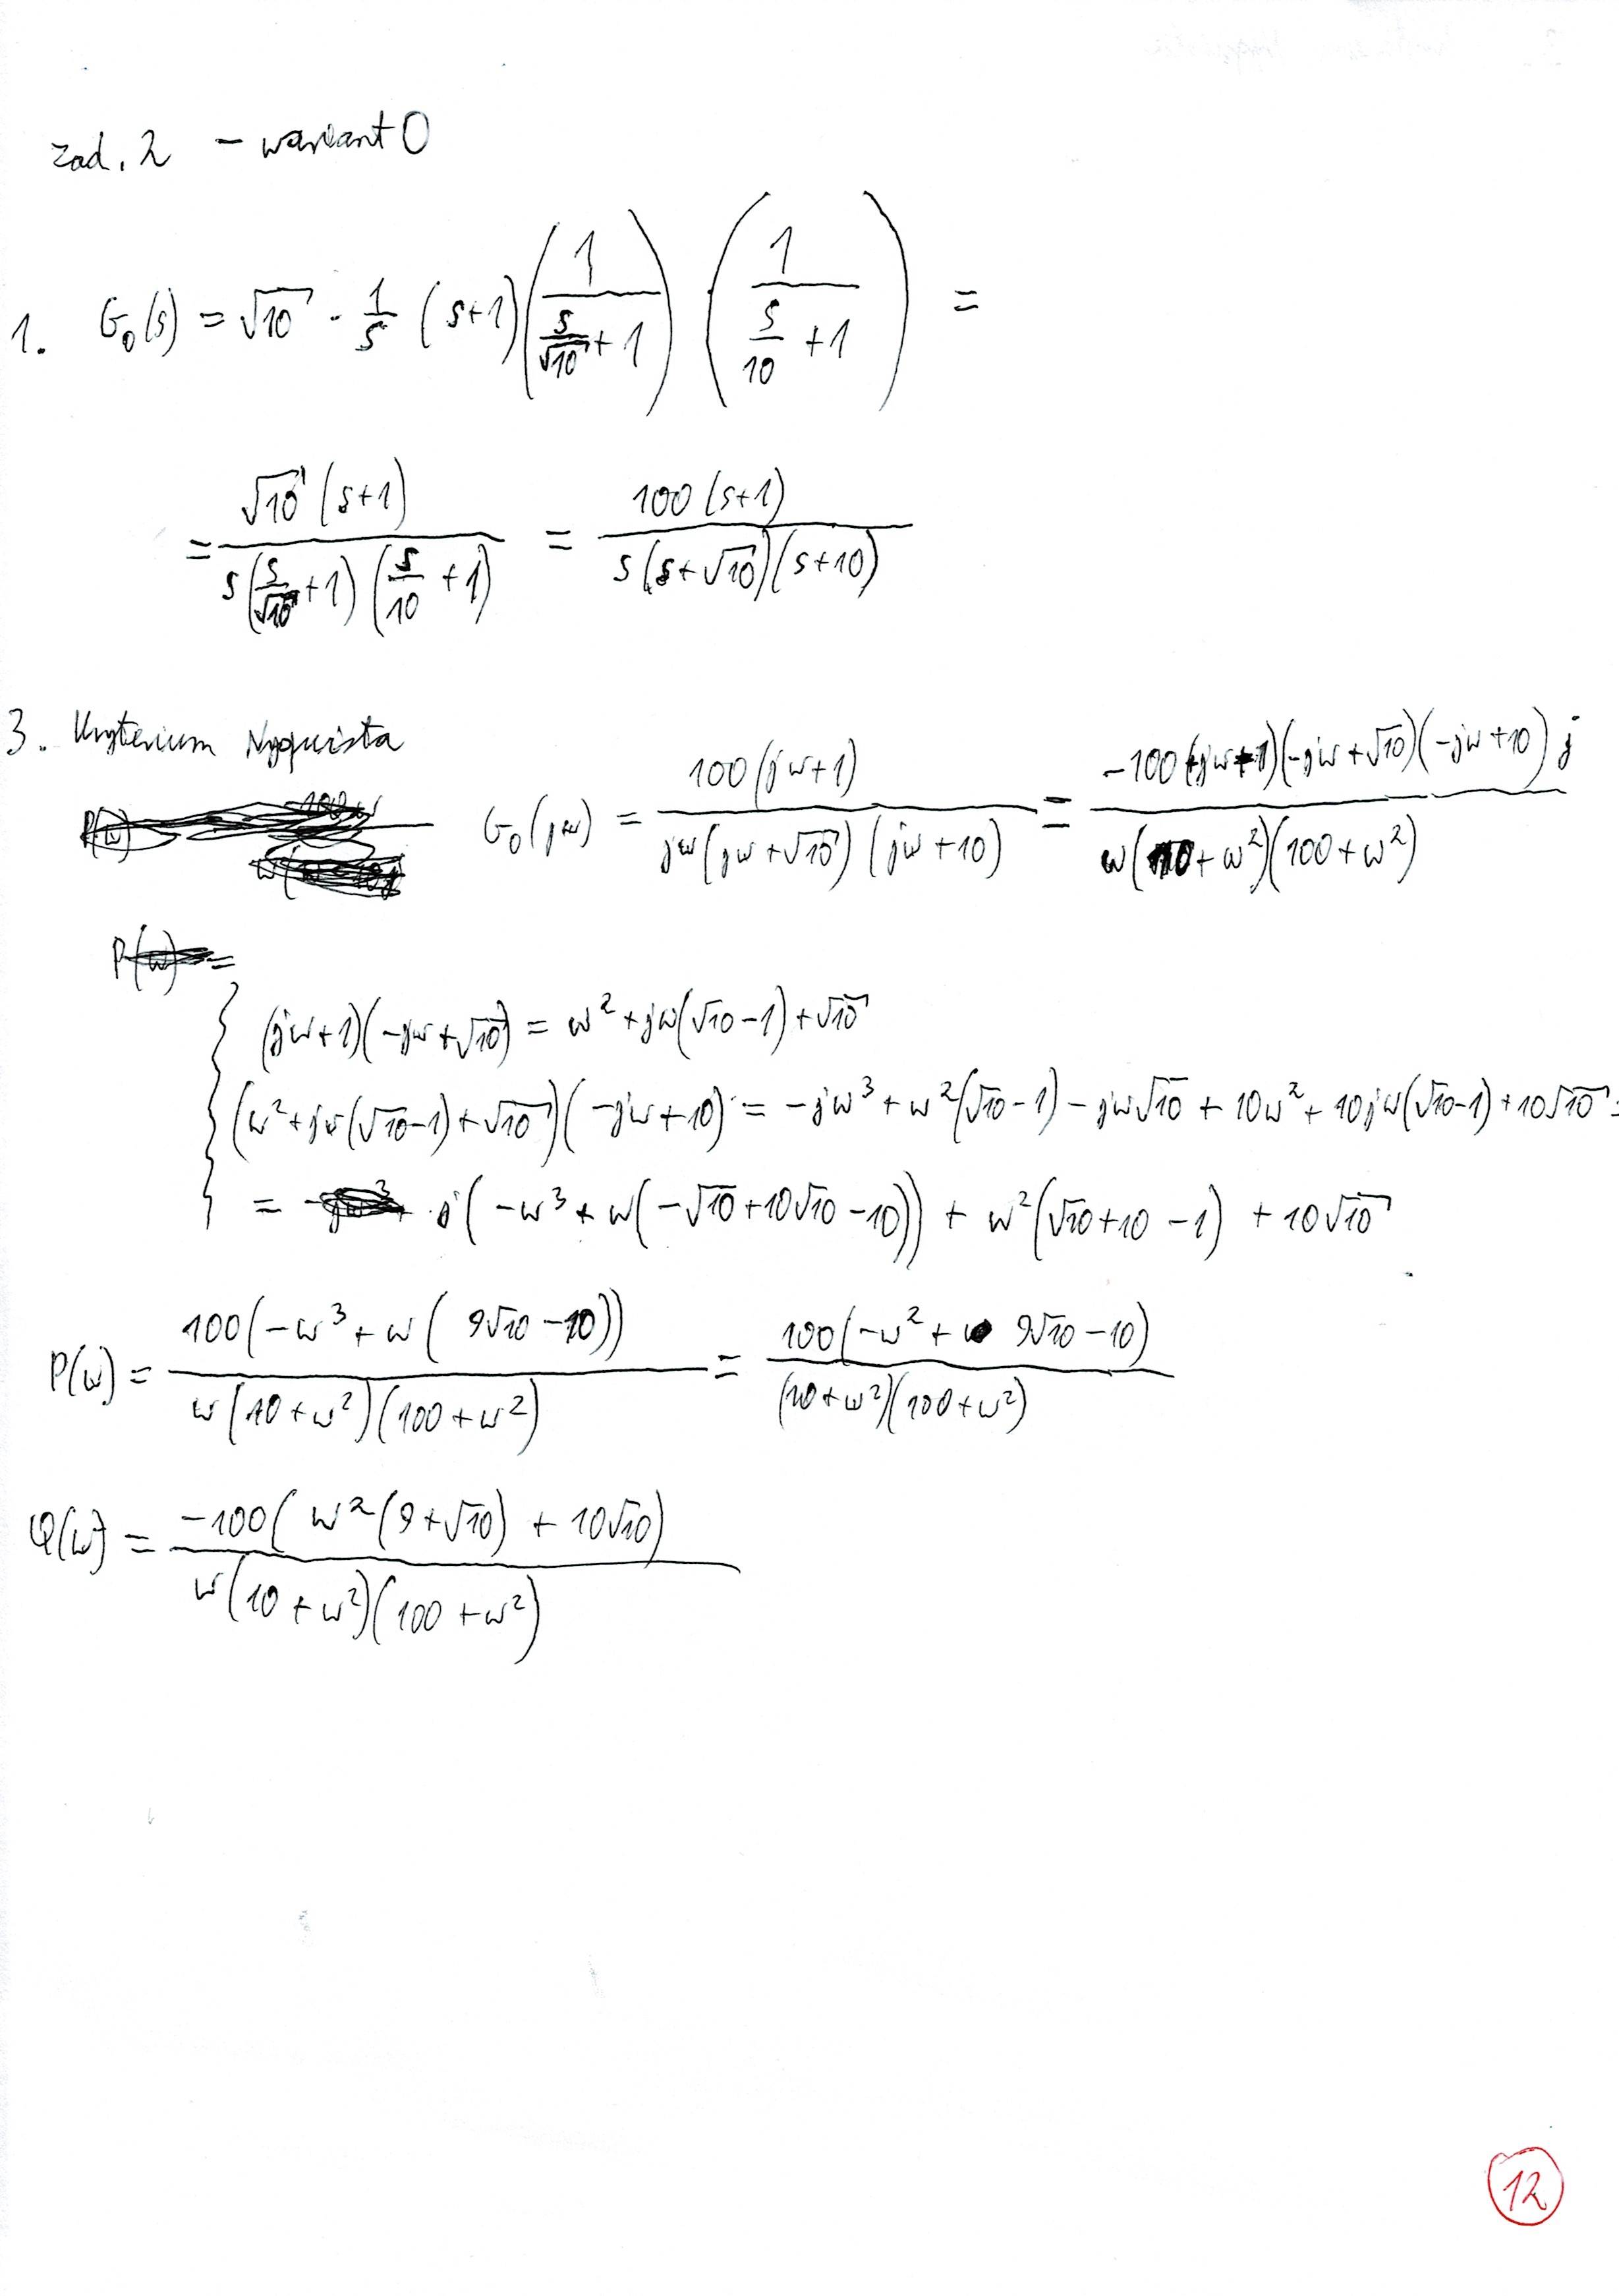 zad. 2 - wariant 0
1. G₀(s) = √10 · 1/s (s+1) (1/(s/√10 + 1)) · (1/(s/10 + 1)) =
= √10 (s+1) / (s(s/√10 + 1)(s/10 + 1)) = 100 (s+1) / (s(s+√10)(s+10))
3. Kryterium Nyquista
G₀(jω) = 100(jω+1) / (jω(jω+√10)(jω+10)) = -100(jω+1)(-jω+√10)(-jω+10)j / (ω(10+ω²)(100+ω²))
(jω+1)(-jω+√10) = ω² + jω(√10-1) + √10
(ω² + jω(√10-1) + √10)(-jω+10) = -jω³ + ω²(√10-1) - jω√10 + 10ω² + 10jω(√10-1) + 10√10 =
= j(-ω³ + ω(-√10 + 10√10 - 10)) + ω²(√10+10-1) + 10√10
P(ω) = 100(-ω³ + ω(9√10-10)) / (ω(10+ω²)(100+ω²)) = 100(-ω² + 9√10-10) / ((10+ω²)(100+ω²))
Q(ω) = -100(ω²(9+√10) + 10√10) / (ω(10+ω²)(100+ω²))
12